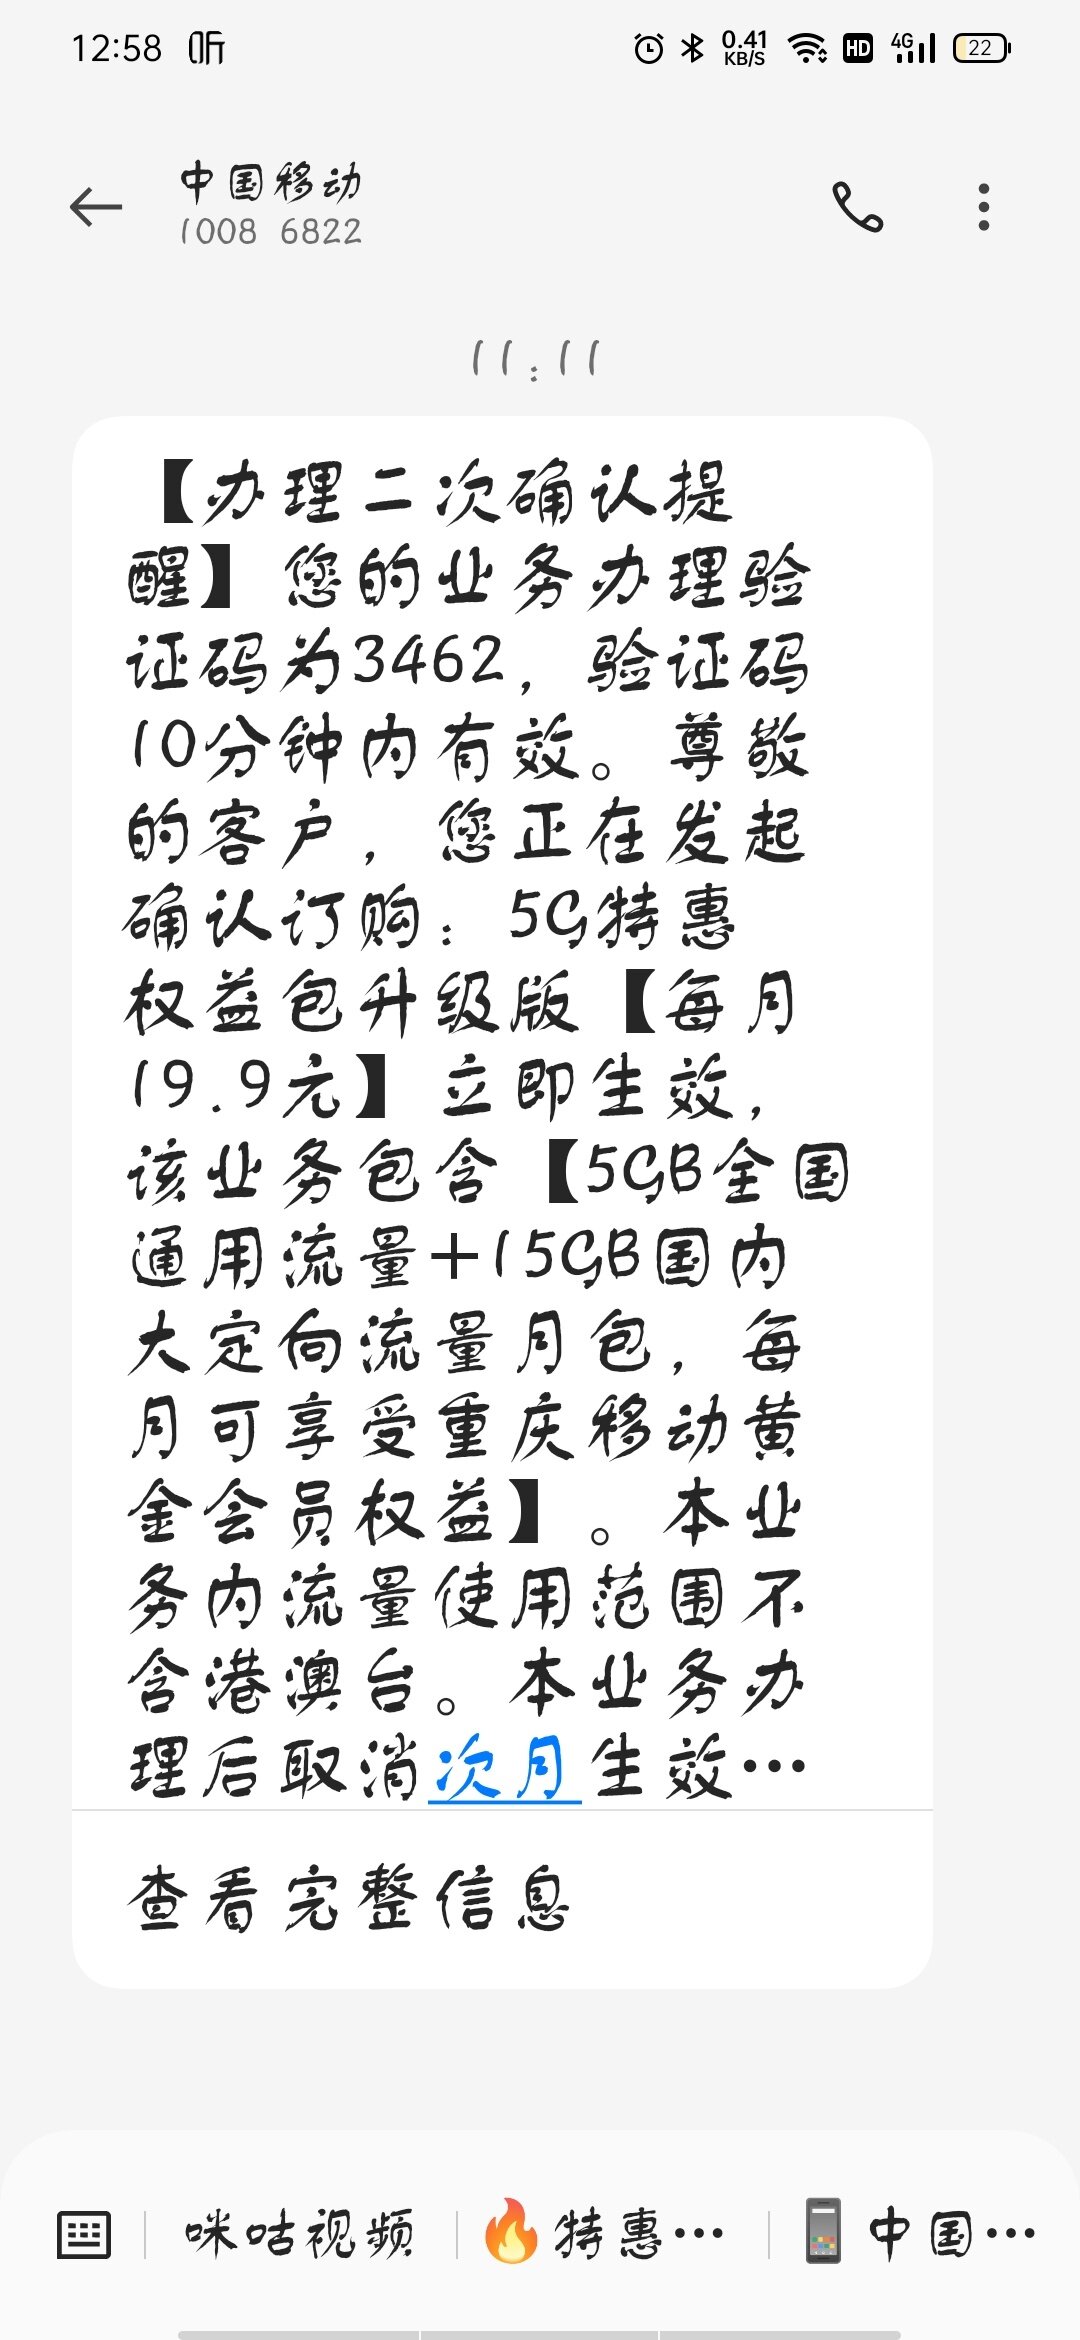 12:58 听 0.41 KB/S HD 4G 22
中国移动
1008 6822
11:11
【办理二次确认提
醒】您的业务办理验
证码为3462，验证码
10分钟内有效。尊敬
的客户，您正在发起
确认订购：5G特惠
权益包升级版【每月
19.9元】立即生效，
该业务包含【5GB全国
通用流量+15GB国内
大定向流量月包，每
月可享受重庆移动黄
金会员权益】。本业
务内流量使用范围不
含港澳台。本业务办
理后取消次月生效…
查看完整信息
咪咕视频 🔥特惠… 📱中国…